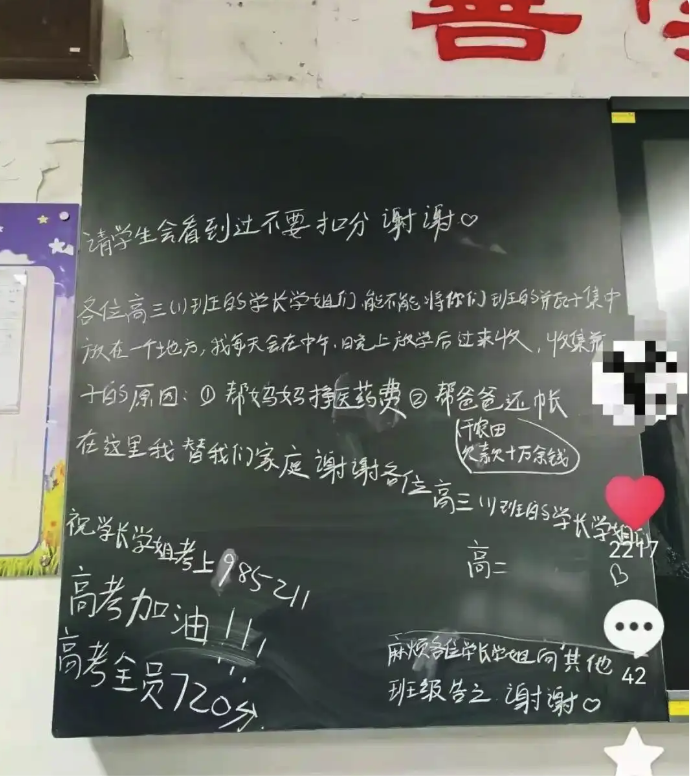 善
请学生会看到过不要扣分 谢谢♡
各位高三(1)班的学长学姐们,能不能将你们班的并瓦子集中
放在一个地方,我每天会在中午、日免上放学后过来收,收集并
子的原因:① 帮妈妈挣医药费② 帮爸爸还帐
干农田
欠款十万余钱
在这里我替我们家庭谢谢各位高三(1)班的学长学姐们
祝学长学姐考上985211
高二
高考加油!!!
高考全员720分.
麻烦各位学长学姐向其他
班级告之 谢谢♡
2217
42